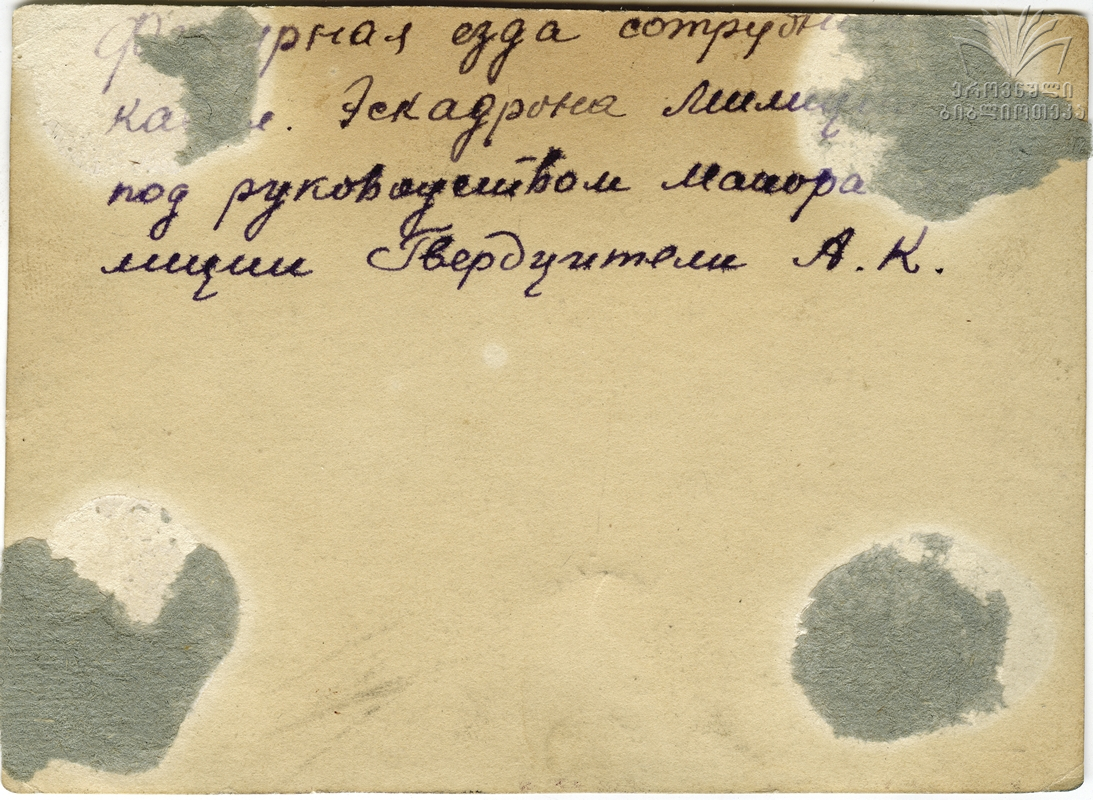 езда сотрудн
Эскадрона Милици
под руководством Маиора
миции Гвердцители А.К.
ეროვნული
ბიბლიოთეკა